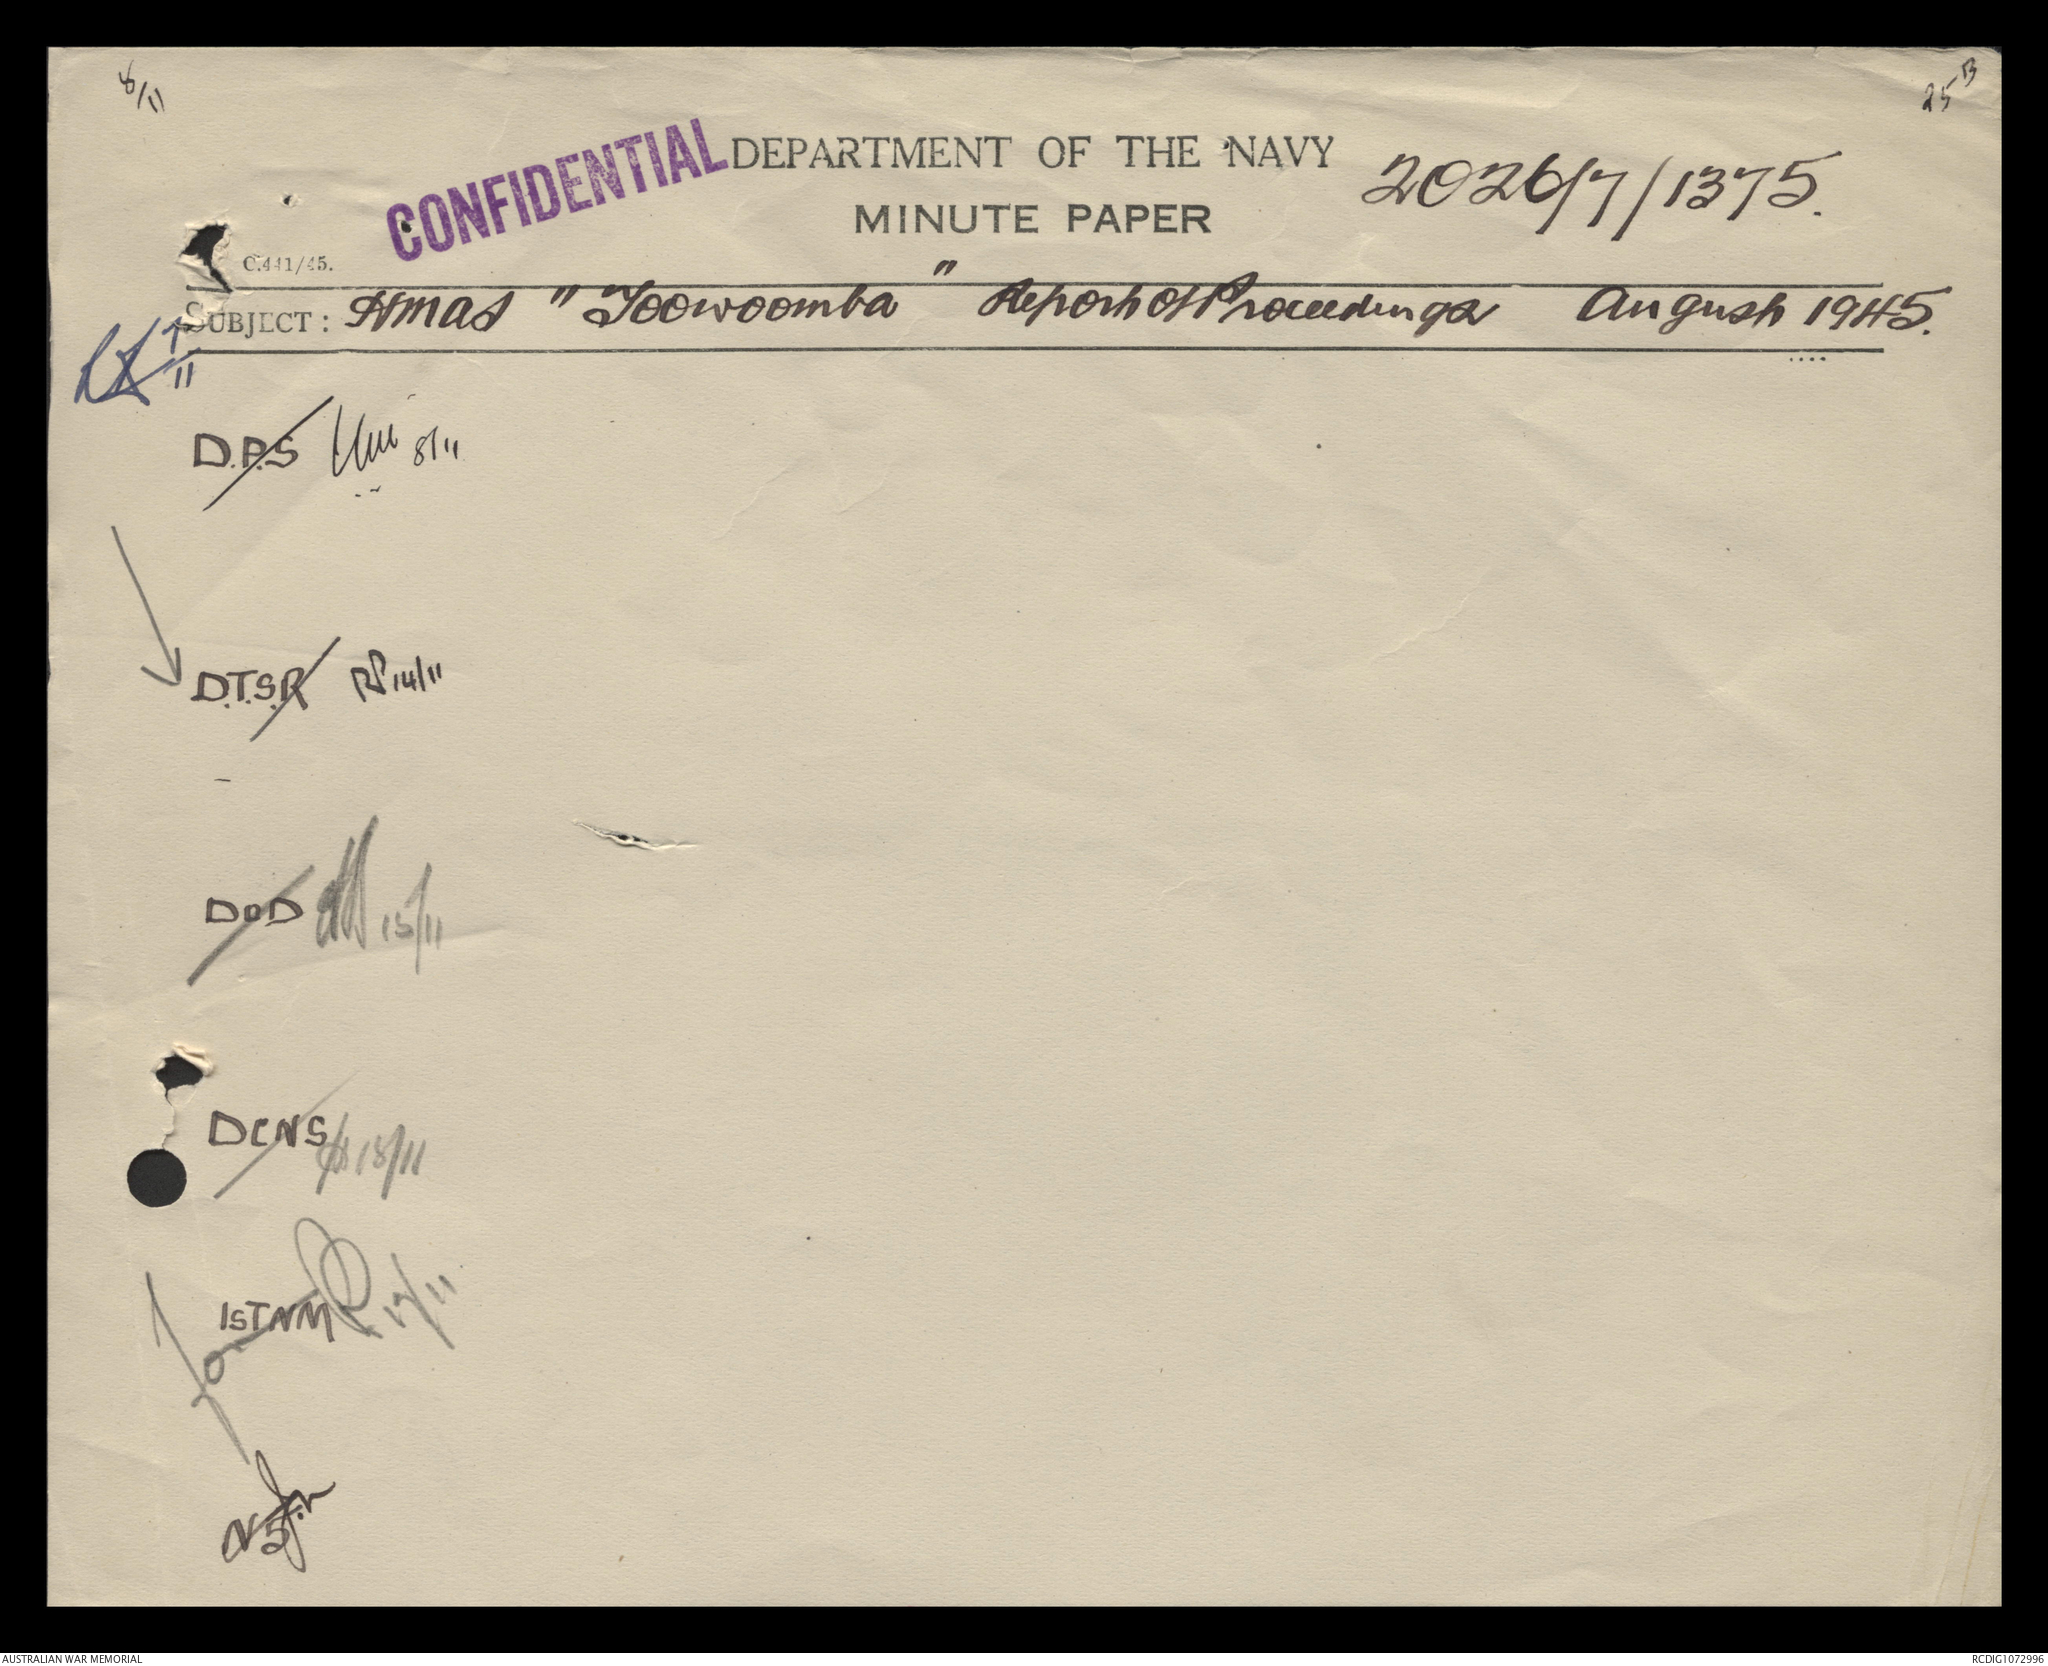 8/11
25B
CONFIDENTIAL
DEPARTMENT OF THE NAVY
2026/7/1375.
MINUTE PAPER
C.441/45.
SUBJECT: HMAS "Toowoomba" Report of Proceedings August 1945.
7/11
D.P.S 8/11
D.T.S.R 14/11
DOD 15/11
DCNS 15/11
1STNM
AUSTRALIAN WAR MEMORIAL
RCDIG1072996